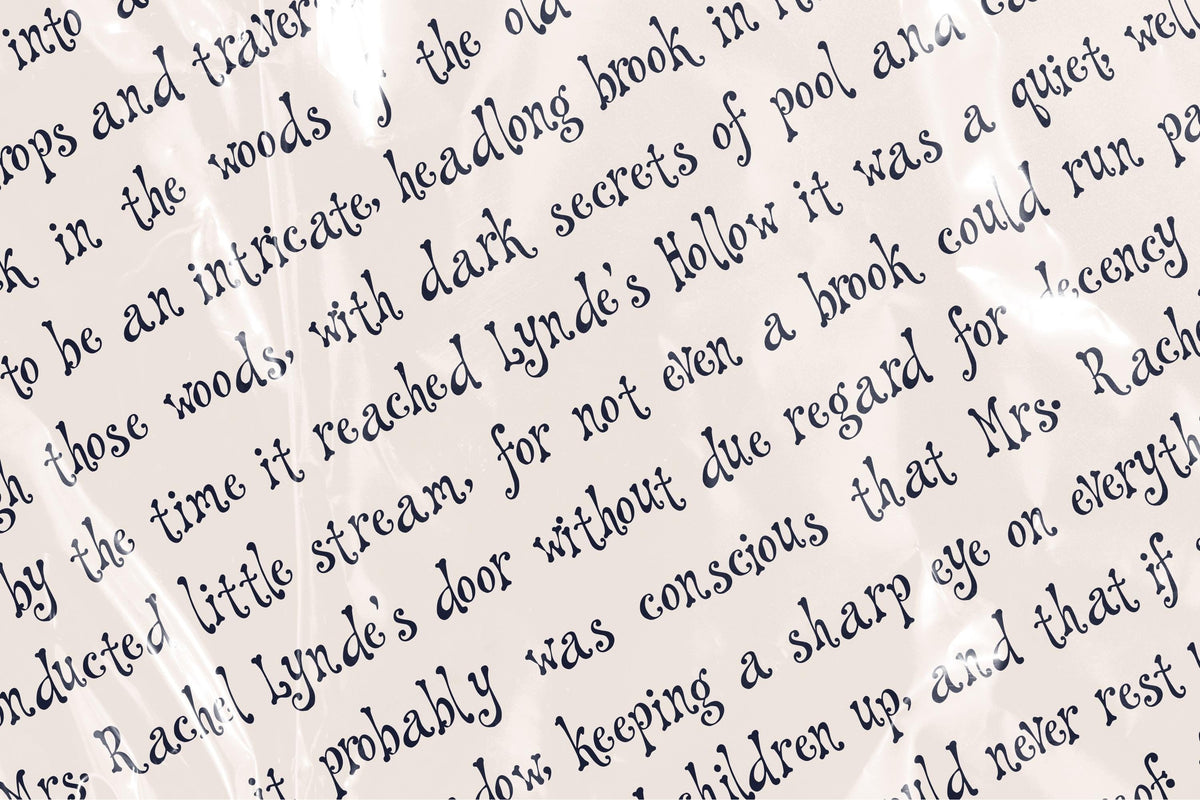 into
rops and traver
k in the woods of the old
to be an intricate, headlong brook in
gh those woods, with dark secrets of pool and ca
by the time it reached Lynde's Hollow it was a quiet, well
onducted little stream, for not even a brook could run pa
Mrs. Rachel Lynde's door without due regard for decency
it probably was conscious that Mrs. Rach
dow, keeping a sharp eye on everyth
children up, and that if
uld never rest
of.